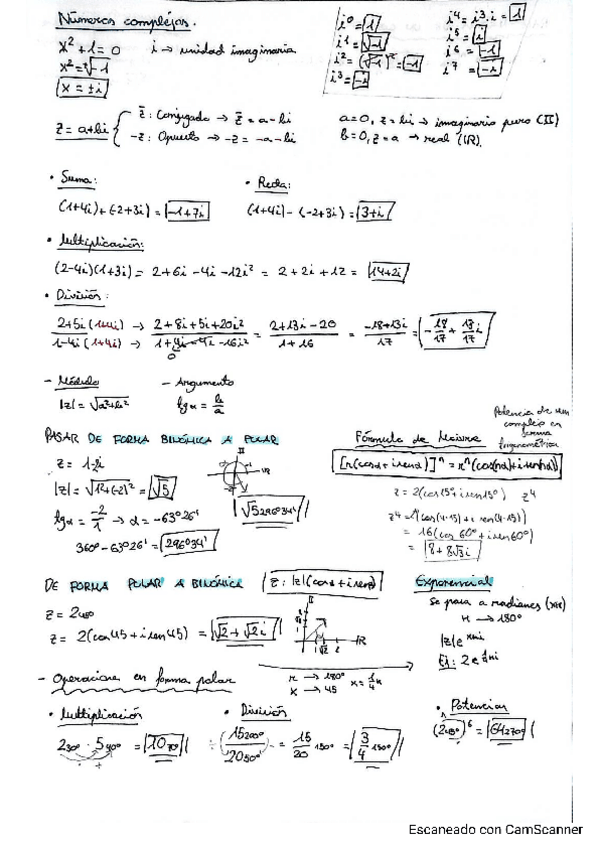 Números complejos.
x² + 1 = 0   i → unidad imaginaria
x² = √-1
x = ±i
i⁰ = 1
i¹ = √-1
i² = (√-1)² = -1
i³ = -i
i⁴ = i³·i = 1
i⁵ = i
i⁶ = -1
i⁷ = -i
z = a+bi
z̄: Conjugado → z̄ = a-bi
-z: Opuesto → -z = -a-bi
a=0, z=bi → imaginario puro (II)
b=0, z=a → real (IR).
• Suma:
(1+4i)+(-2+3i) = -1+7i
• Resta:
(1+4i)-(-2+3i) = 3+i
• Multiplicación:
(2-4i)(1+3i) = 2+6i-4i-12i² = 2+2i+12 = 14+2i
• División:
2+5i (1+4i) → 2+8i+5i+20i² = 2+13i-20 = -18+13i = -18/17 + 13/17 i
1-4i (1+4i) → 1+4i-4i-16i²   1+16   17
0
- Módulo
|z| = √a²+b²
- Argumento
tg α = b/a
PASAR DE FORMA BINÓMICA A POLAR
z = 1-2i
|z| = √1²+(-2)² = √5
tg α = -2/1 → α = -63°26'
360°-63°26' = 296°34'
√5 296°34'
Potencia de un
complejo en
forma
trigonométrica
Fórmula de Moivre
[r(cosα+isenα)]ⁿ = rⁿ(cos(nα)+isen(nα))
z = 2(cos15°+isen15°)   z⁴
(cos(4·15)+i sen(4·15))
= 16(cos 60°+isen60°)
= 8+8√3i
DE FORMA POLAR A BINÓMICA
z: |z|(cosα+isenα)
z = 2 45°
z = 2(cos45+isen45) = √2+√2i
Exponencial
Se pasa a radianes
π → 180°
|z|e
Ej: 2e
- Operaciones en forma polar
π → 180°
x → 45
x = 1/4 π
• Multiplicación
2 30° · 5 40° = 10 70°
• División
15 200° / 20 50° = 15/20 150° = 3/4 150°
• Potencias
(2 45°)⁶ = 64 270°
Escaneado con CamScanner